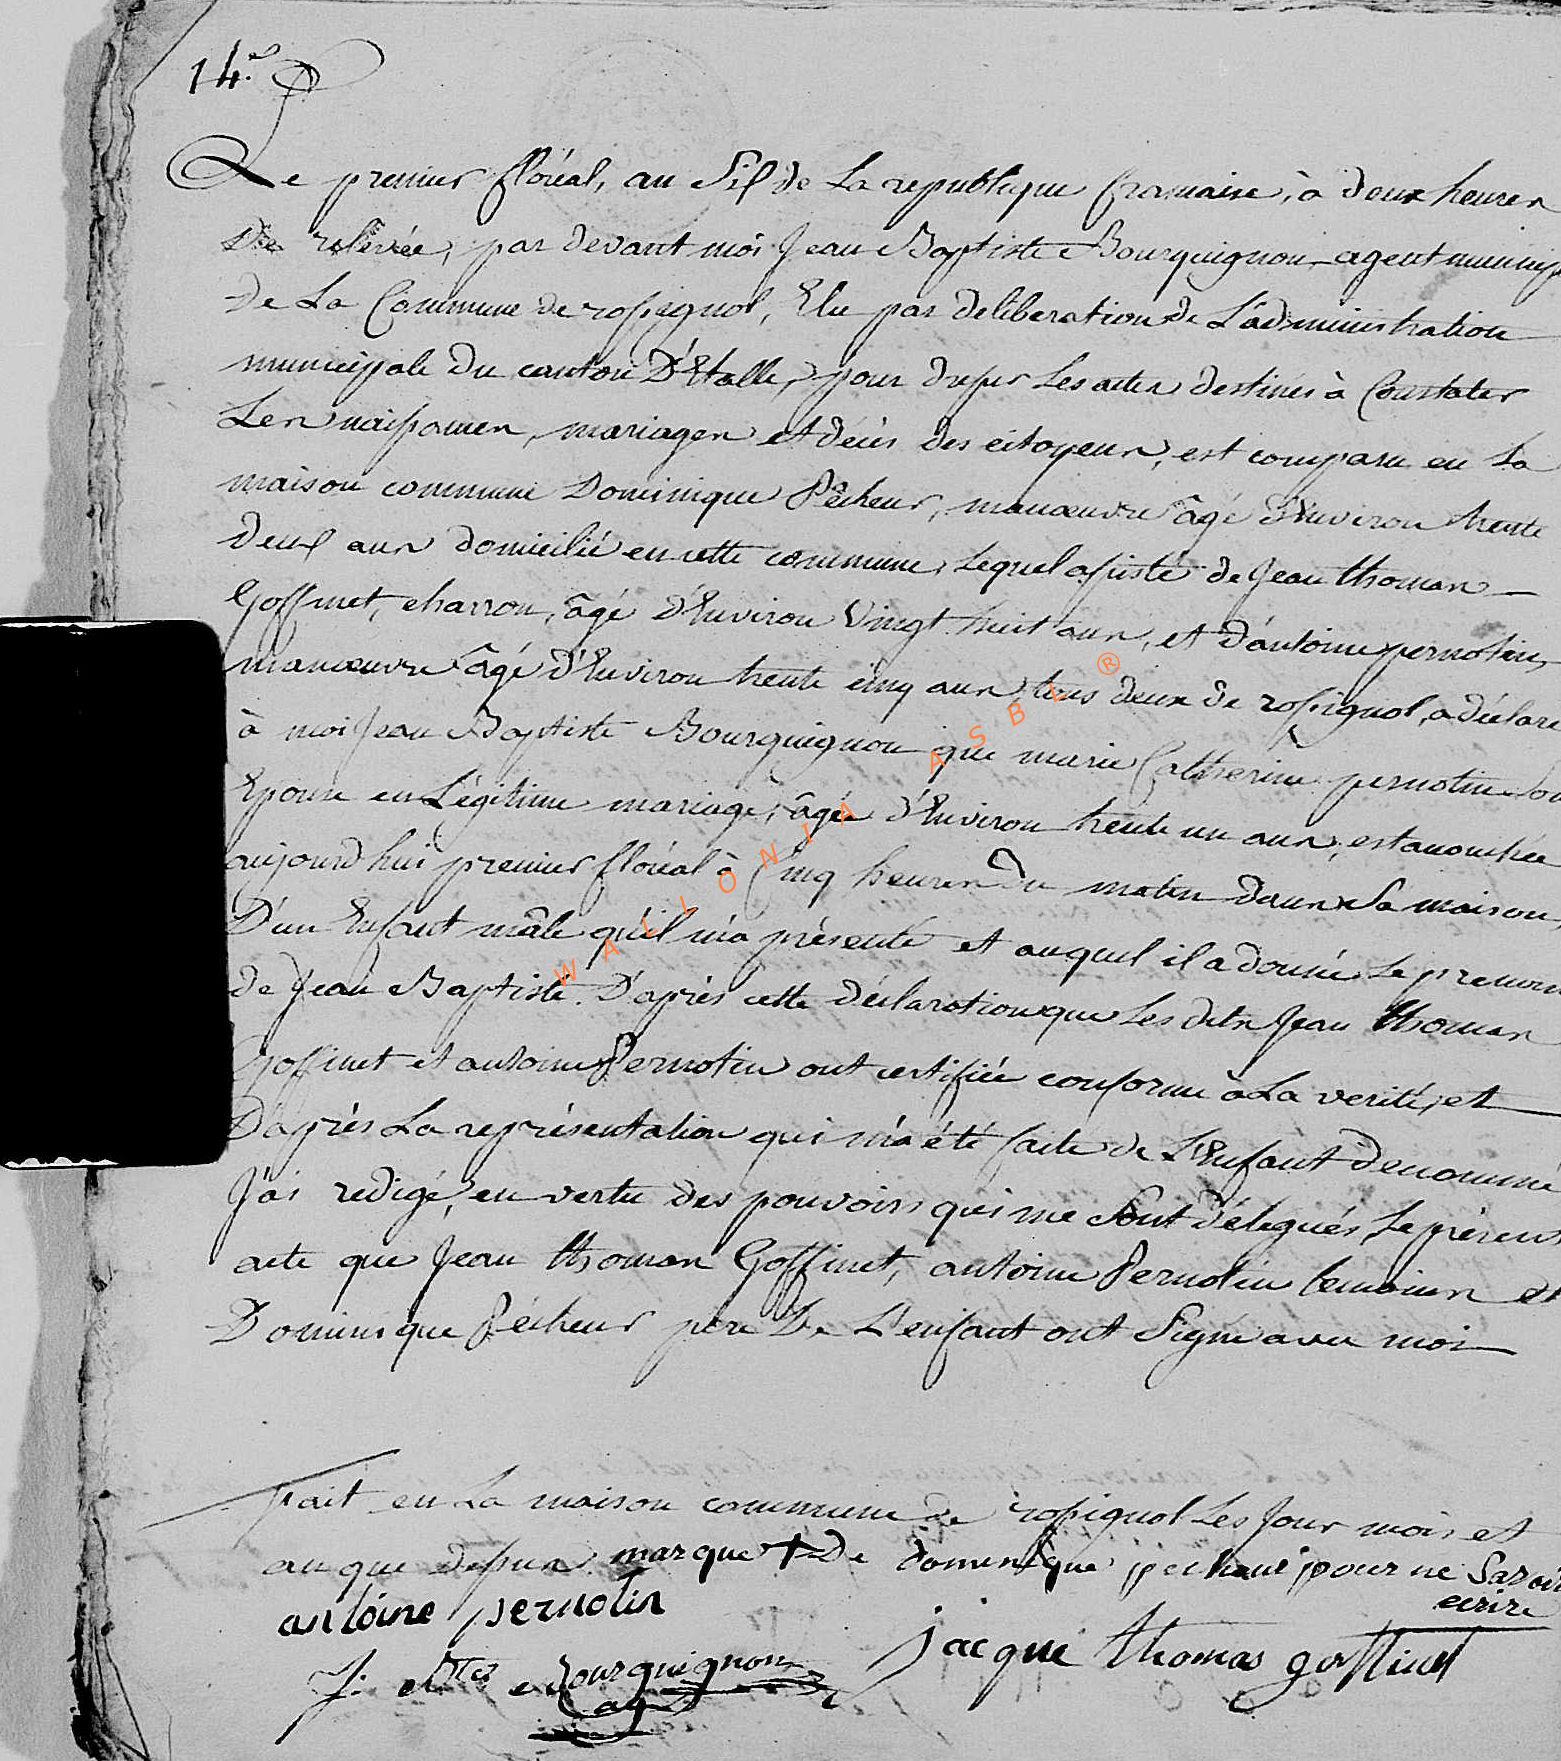 14.e
Le premier floréal, an Six de La republique francaise, à deux heures
de relevée, par devant moi Jean Baptiste Bourguignon agent municip
De La Commune de rossignol, Elu par deliberation de L'administration
municipale du canton D'Etalle, pour dresser Les actes destinés à Constater
Les naissances, mariages et décès des citoyens, est comparu en La
maison commune Dominique Pêcheur, manœuvre âgé d'Environ trente
deux ans domicilié en cette commune, Lequel assisté de Jean thomas
Goffinet, charron, âgé d'Environ Vingt huit ans, et d'antoine pernotin,
manœuvre âgé d'Environ trente cinq ans, tous deux de rossignol, a déclaré
à moi Jean Baptiste Bourguignon que marie Catherine pernotin son
Epouse en Légitime mariage, âgée d'Environ trente un ans, est accouchée
aujourd'hui premier floréal à Cinq heures du matin dans Sa maison,
D'un Enfant mâle qu'il m'a présenté et auquel il a donné Le prenom
de Jean Baptiste. D'après cette déclaration que Les dits Jean thomas
Goffinet et antoine Pernotin ont certifiée conforme à La verité, et
D'après La représentation qui m'a été faite de L'Enfant denommé
J'ai redigé, en vertu des pouvoirs qui me Sont délegués, Le présent
acte que Jean thomas Goffinet, antoine Pernotin temoins et
Dominique Pêcheur pere De L'enfant ont Signé avec moi
fait en La maison commune de rossignol Les Jour mois et
an que dessus. marque + De domenique pecheur pour ne Savoir
ecrire
antoine pernotin
jacque thomas goffinet
J: Bte Bourguignon
agt
WALLONIA ASBL ®